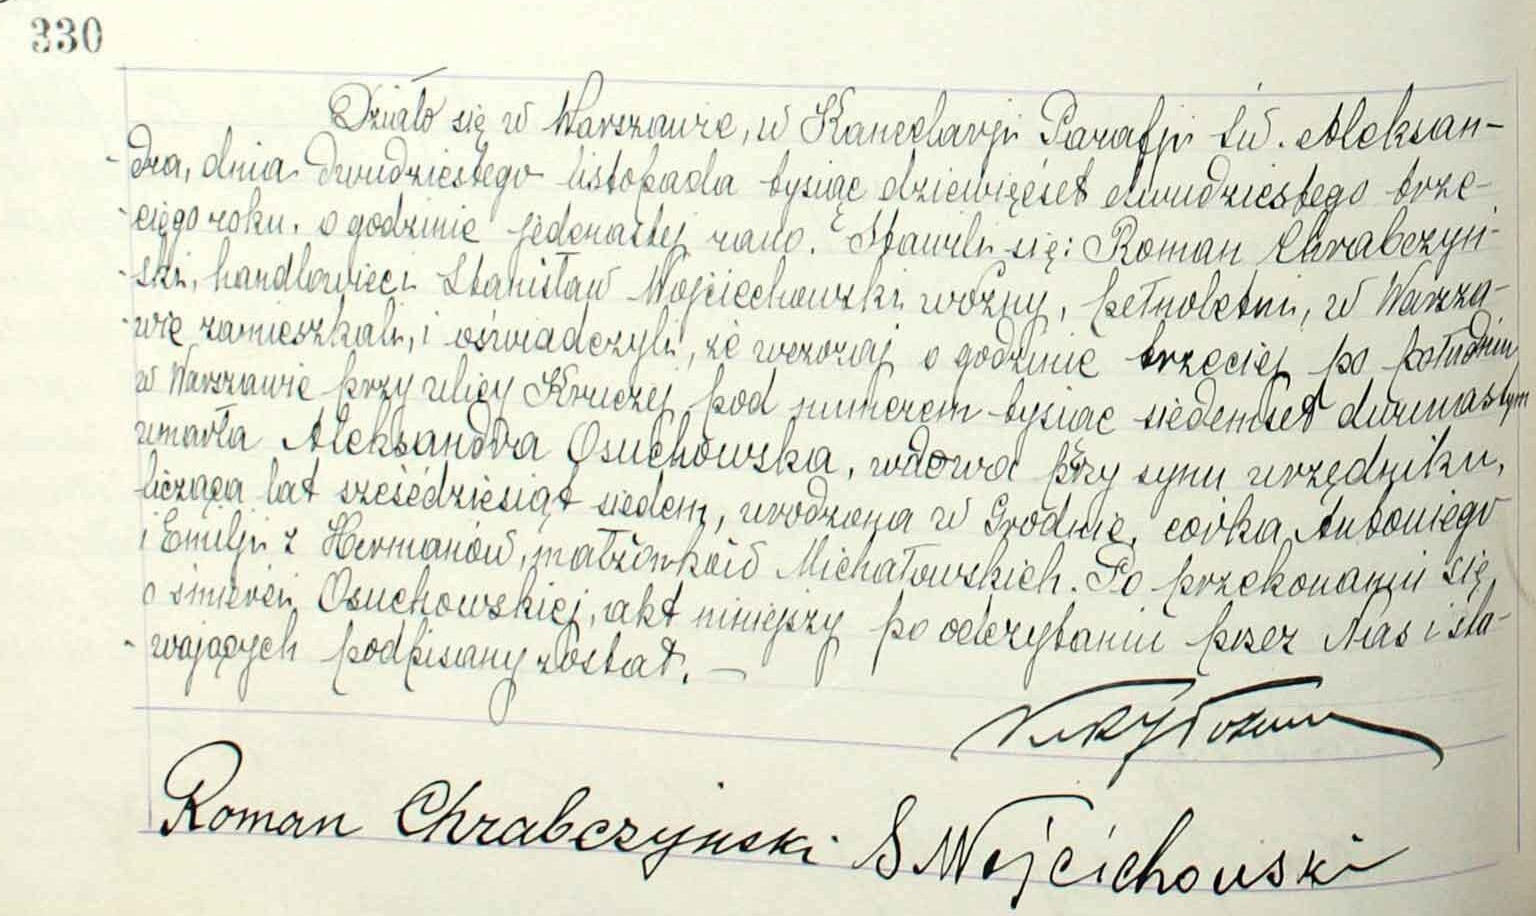 330
Działo się w Warszawie, w Kancelarji Parafji św. Aleksan-
-dra, dnia dwudziestego listopada tysiąc dziewięćset dwudziestego trze-
-ciego roku, o godzinie jedenastej rano. Stawili się: Roman Chrabczyń-
-ski, handlowiec i Stanisław Wojciechowski woźny, pełnoletni, w Warsza-
-wie zamieszkali, i oświadczyli, że wczoraj o godzinie trzeciej po południu
w Warszawie przy ulicy Kruczej pod numerem tysiąc siedemset dwunastym
umarła Aleksandra Osuchowska, wdowa przy synu urzędniku,
licząca lat sześćdziesiąt siedem, urodzona w Grodnie, córka Antoniego
i Emilji z Hermanów, małżonków Michałowskich. Po przekonaniu się
o śmierci Osuchowskiej, akt niniejszy po odczytaniu przez Nas i sta-
-wających podpisany został. —
Roman Chrabczyński S Wojcichowski